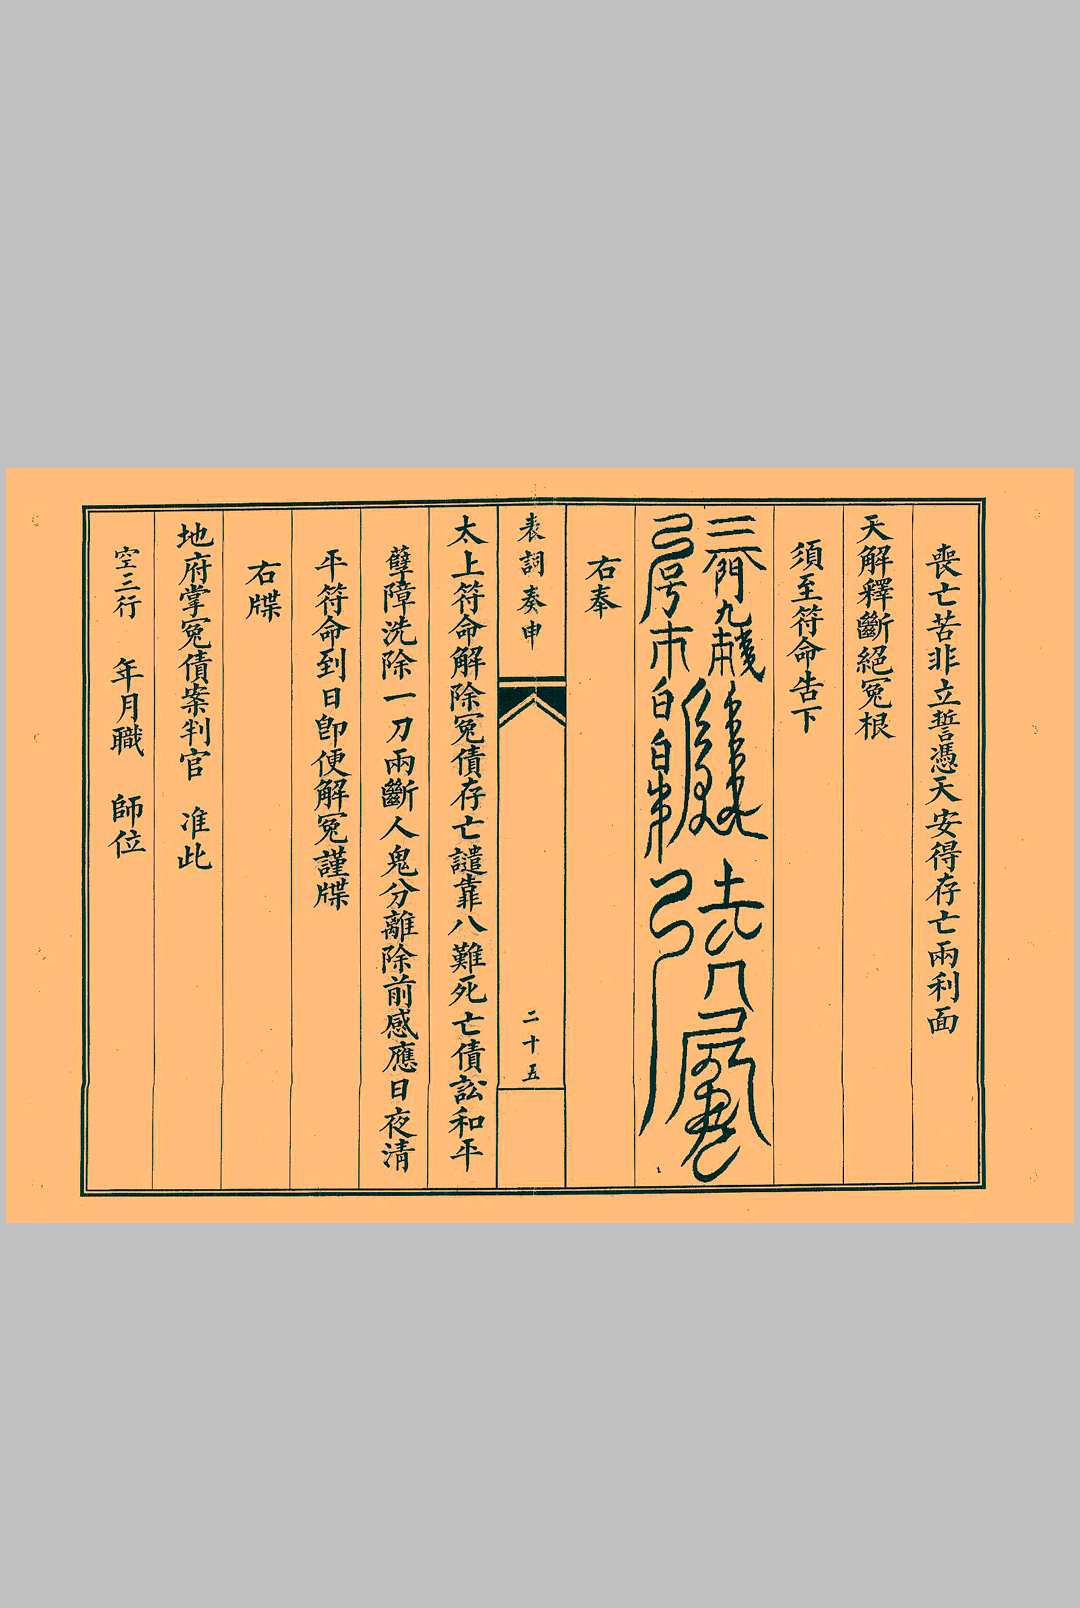 喪亡苦非立誓憑天安得存亡兩利面
天解釋斷絕冤根
須至符命告下
右奉
表詞奏申
二十五
太上符命解除冤債存亡譴靠八難死亡債訟和平
孽障洗除一刀兩斷人鬼分離除前感應日夜清
平符命到日卽便解冤謹牒
右牒
地府掌冤債案判官 准此
空三行 年月職 師位